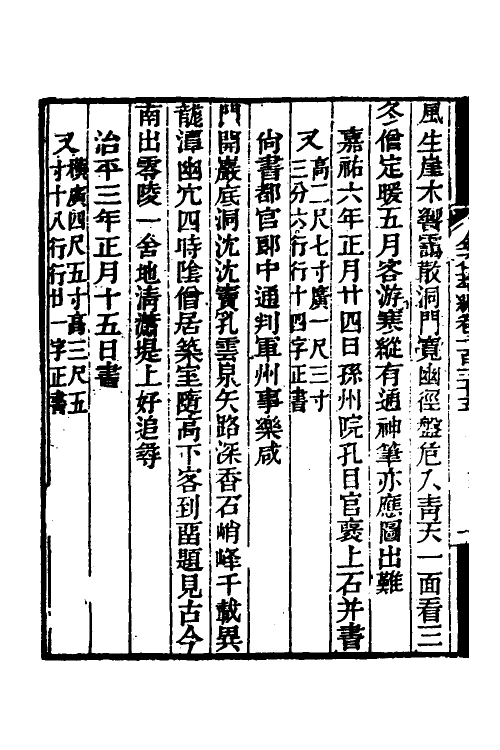 風生崖木響靄散洞門寬幽徑盤危入靑天一面看三
冬僧定暖五月客游寒縱有通神筆亦應圖出難
嘉祐六年正月廿四日孫州院孔目官襃上石并書
又高二尺七寸廣一尺三寸
三分六行行十四字正書
尙書都官郎中通判軍州事樂咸
門開巖底洞沈沈竇乳雲泉矢路深香石峭峰千載異
龍潭幽穴四時陰僧居築室隨高下客到畱題見古今
南出零陵一舍地淸瀟堤上好追尋
治平三年正月十五日書
又橫廣四尺五寸高三尺五
寸十八行行廿一字正書